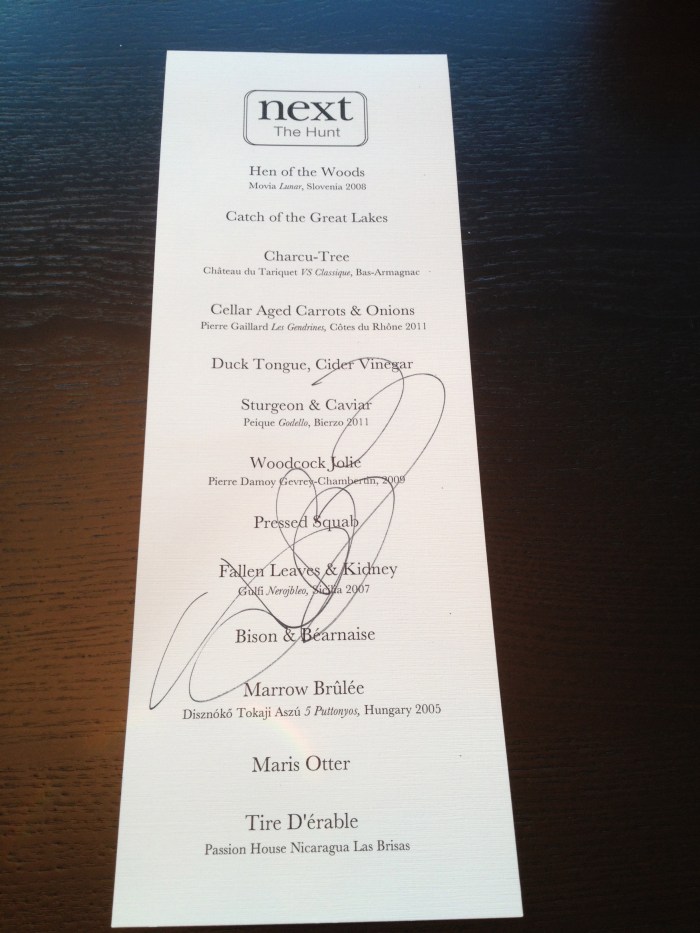 next
The Hunt
Hen of the Woods
Movia Lunar, Slovenia 2008
Catch of the Great Lakes
Charcu-Tree
Château du Tariquet VS Classique, Bas-Armagnac
Cellar Aged Carrots & Onions
Pierre Gaillard Les Gendrines, Côtes du Rhône 2011
Duck Tongue, Cider Vinegar
Sturgeon & Caviar
Peique Godello, Bierzo 2011
Woodcock Jolie
Pierre Damoy Gevrey-Chambertin, 2009
Pressed Squab
Fallen Leaves & Kidney
Gulfi Nerojbleo, Sicilia 2007
Bison & Béarnaise
Marrow Brûlée
Disznókő Tokaji Aszú 5 Puttonyos, Hungary 2005
Maris Otter
Tire D'érable
Passion House Nicaragua Las Brisas